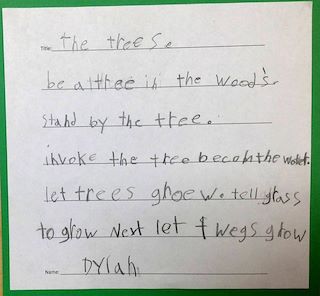 Title: the trees.
be a ttree in the wood's.
stand by the tree.
invoke the tree becom the water.
let trees ghoew. tell grass
to grow Next let twegs grow
Name: Dylan